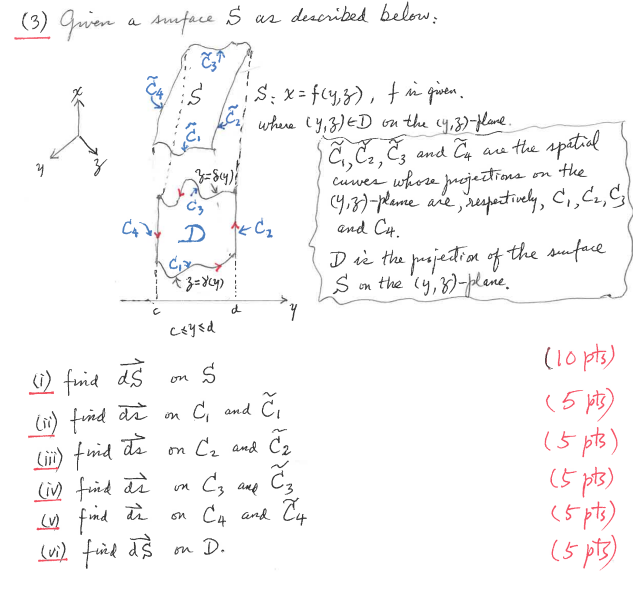 (3) Given a surface S as described below:
x
y
z
C̃₃
C̃₄
S
C̃₂
C̃₁
S: x = f(y,z), f is given.
where (y,z)∈D on the (y,z)-plane.
C̃₁, C̃₂, C̃₃ and C̃₄ are the spatial
curves whose projections on the
(y,z)-plane are, respectively, C₁, C₂, C₃
and C₄.
D is the projection of the surface
S on the (y,z)-plane.
z=δ(y)
C₃
C₄
D
C₂
C₁
z=γ(y)
c
d
y
c≤y≤d
(i) find dS⃗ on S (10 pts)
(ii) find ds⃗ on C₁ and C̃₁ (5 pts)
(iii) find ds⃗ on C₂ and C̃₂ (5 pts)
(iv) find ds⃗ on C₃ and C̃₃ (5 pts)
(v) find ds⃗ on C₄ and C̃₄ (5 pts)
(vi) find dS⃗ on D. (5 pts)